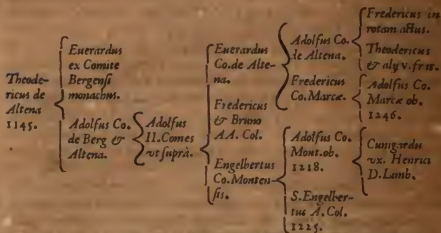 Theode-
ricus de
Altena
1145.
Euerardus
ex Comite
Bergensi
monachus.
Adolfus Co.
de Berg &
Altena.
Adolfus
II. Comes
vt suprà.
Euerardus
Co. de Alte-
na.
Fredericus
& Bruno
AA. Col.
Engelbertus
Co. Monten-
sis.
Adolfus Co.
de Altena.
Fredericus
Co. Marcæ.
Adolfus Co.
Mont. ob.
1218.
S. Engelber-
tus A. Col.
1225.
Fredericus in
rotam actus.
Theodericus
& alij v. frat.
Adolfus Co.
Marcæ ob.
1246.
vx. Henrici
D. Limb.